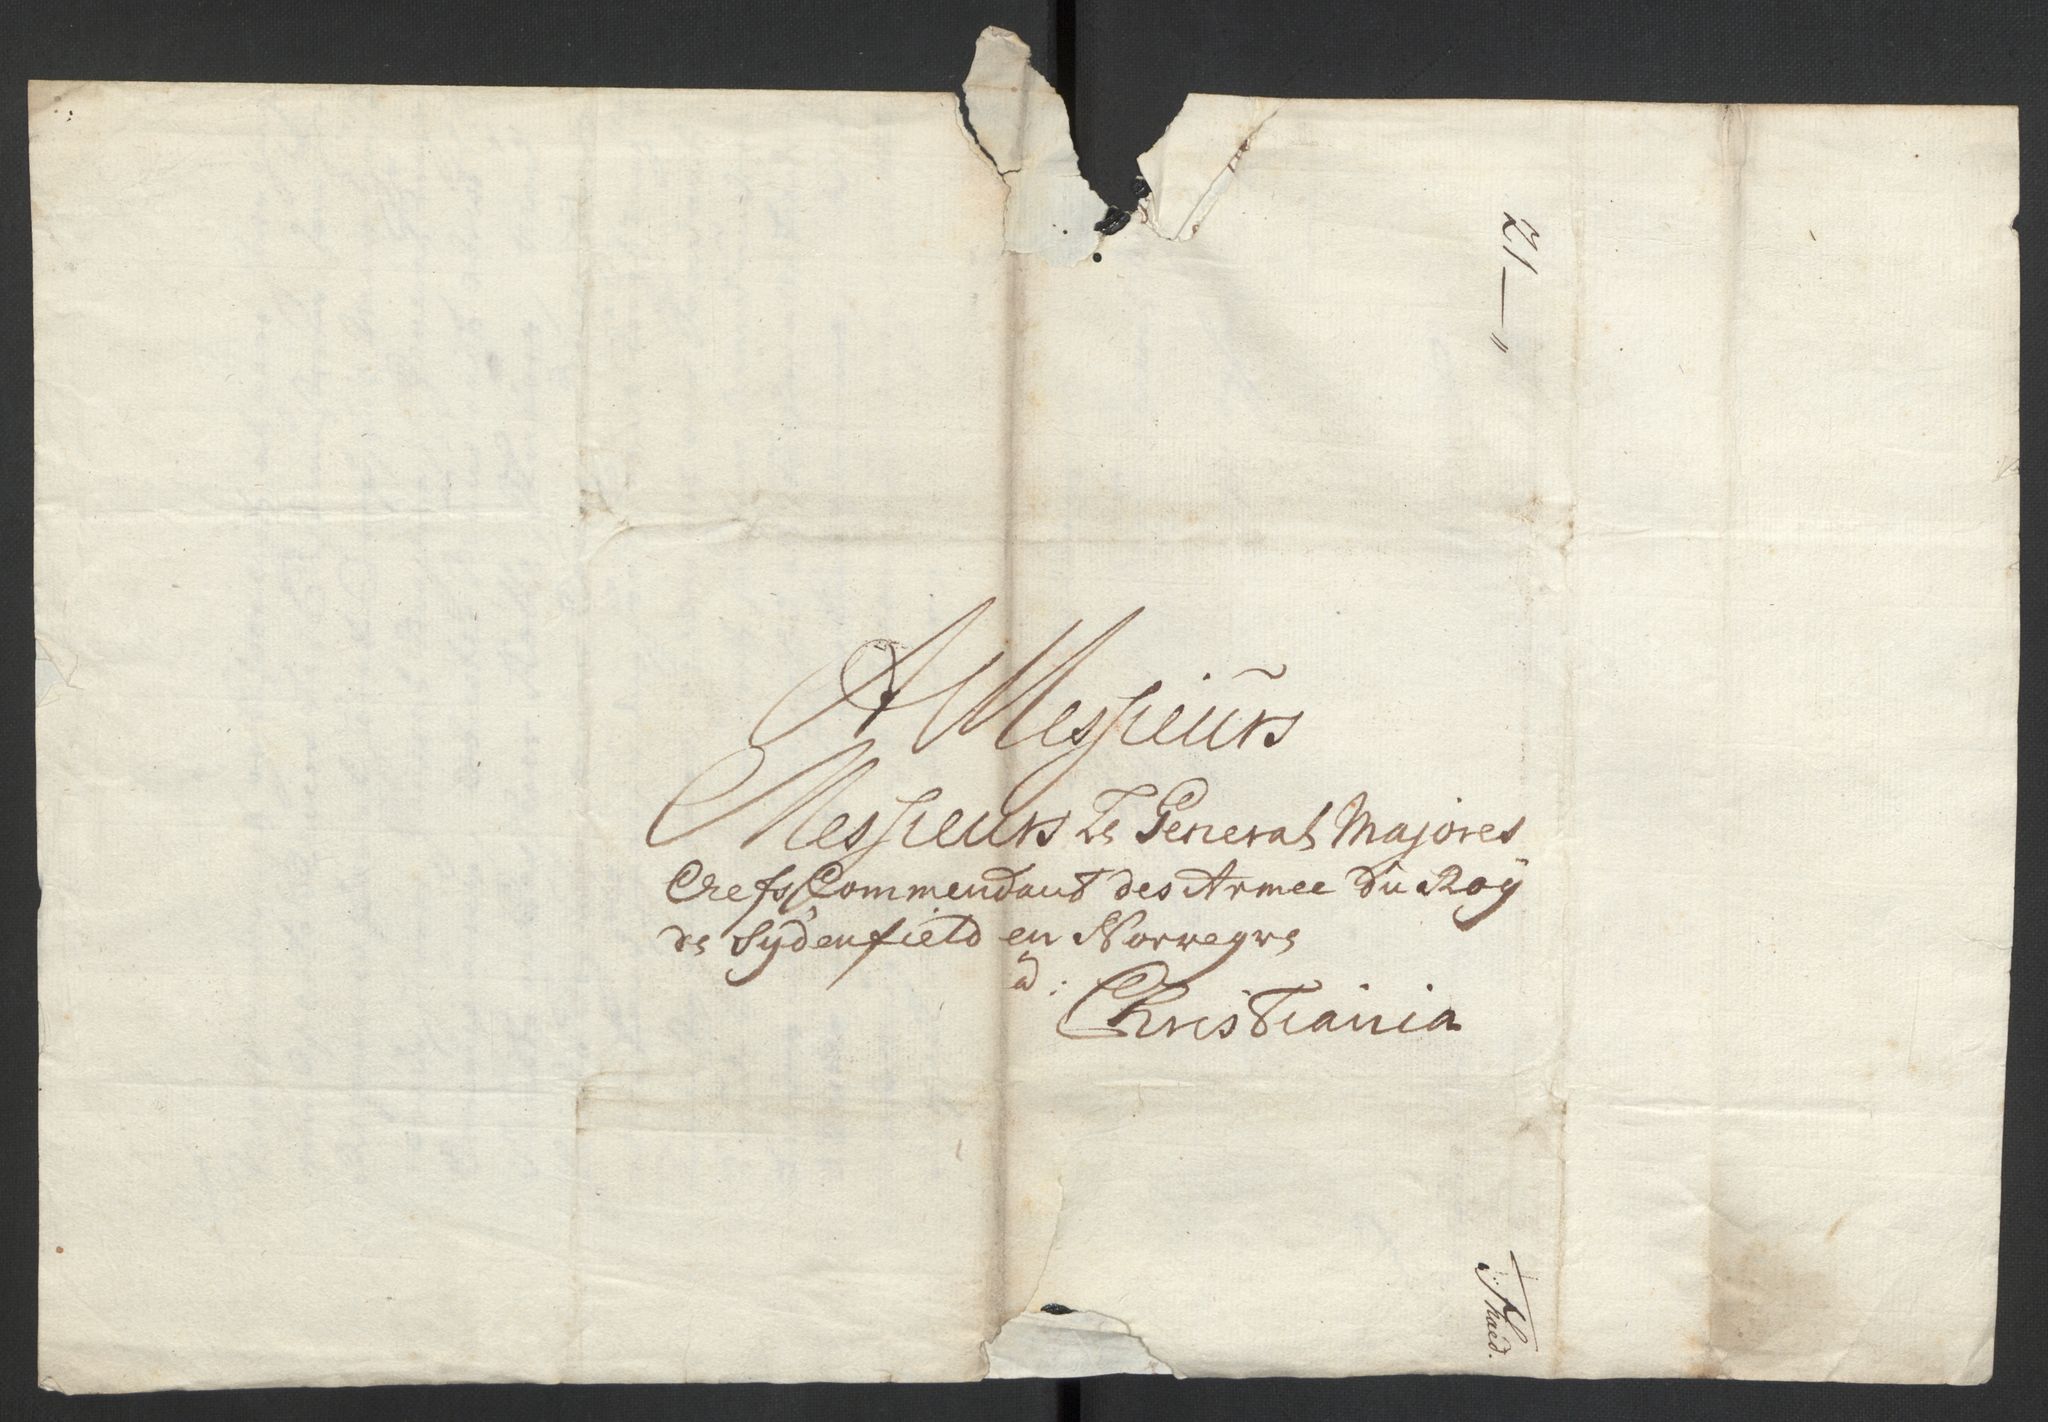 A Messieurs
Messieurs Le General Majores
Chefs Commendant des Armee du Roÿ
de Sydenfield en Norregve
â:
Christiania
21 — "